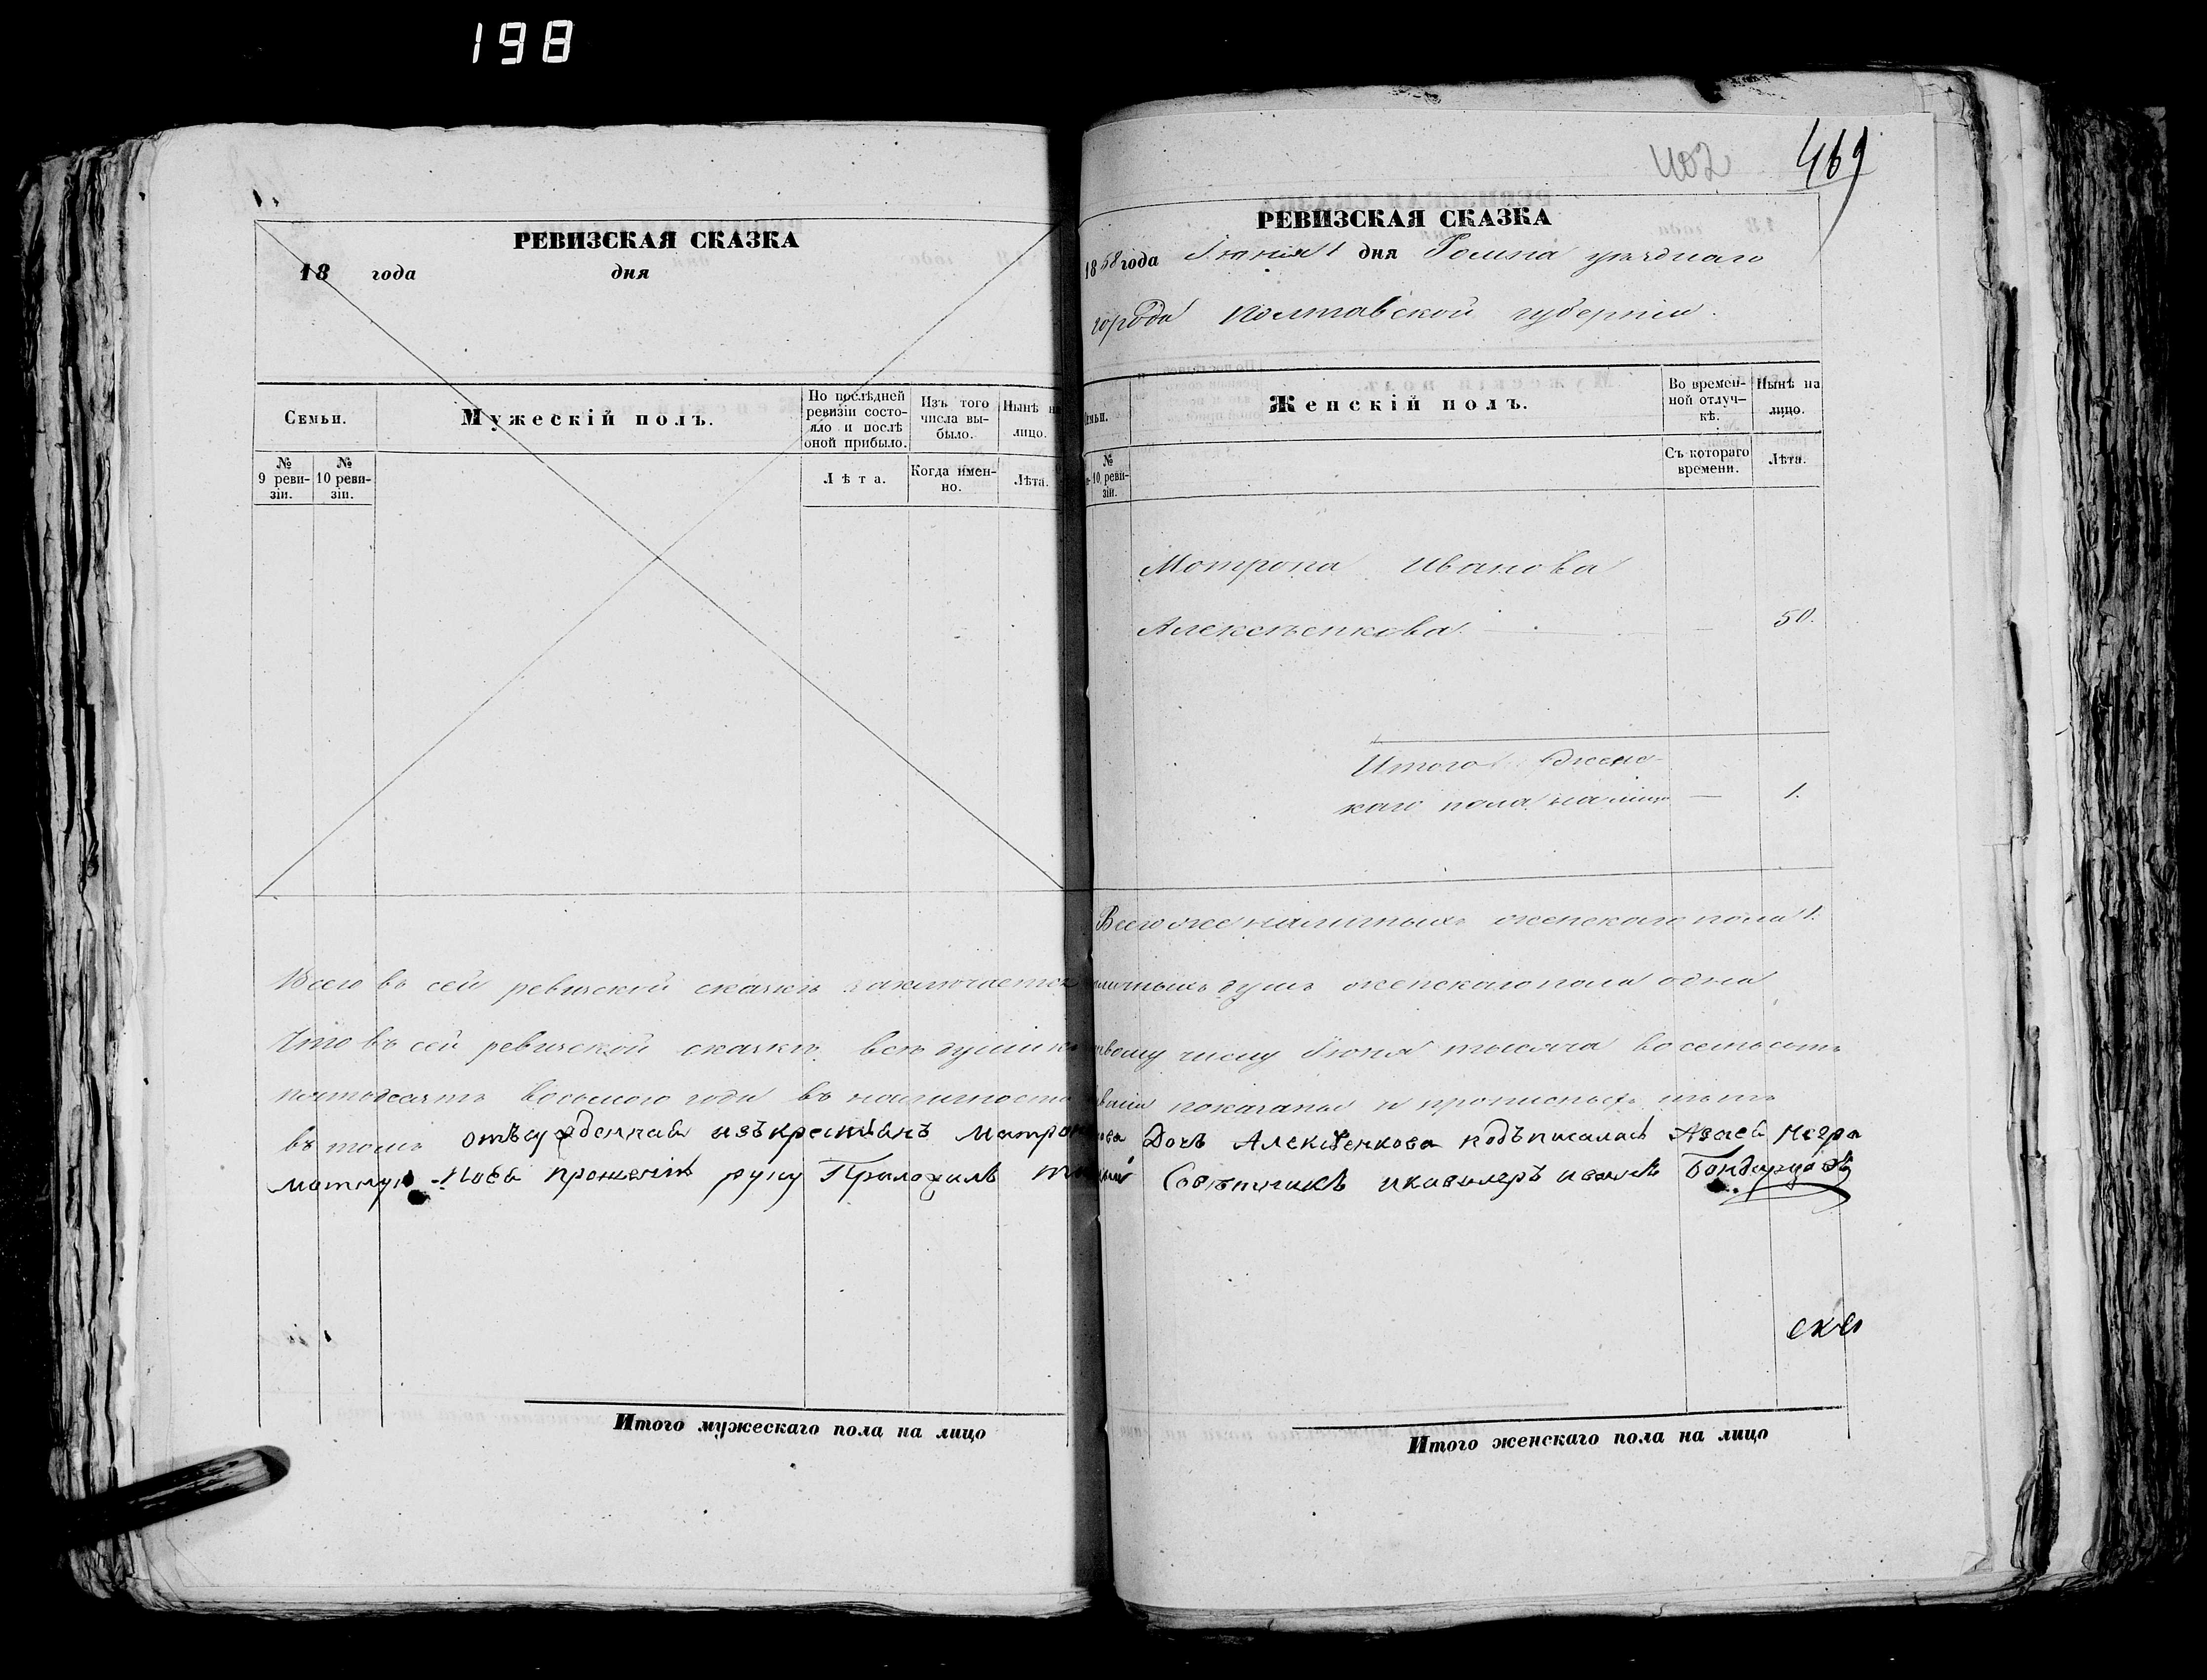 198
РЕВИЗСКАЯ СКАЗКА
18 года дня
Семьи.
Мужескій полъ.
По послѣдней ревизіи состо-
яло и послѣ оной прибыло.
Изъ того числа вы-
было.
Нынѣ на лицо.
№ 9 реви-
зіи.
№ 10 реви-
зіи.
Лѣта.
Когда имен-
но.
Лѣта.
Итого мужескаго пола на лицо
402
469
РЕВИЗСКАЯ СКАЗКА
1858 года Іюня 1 дня Ромна уѣзднаго
города Полтавской губерніи.
Женскій полъ.
Во времен-
ной отлуч-
кѣ.
Нынѣ на
лицо.
№
10 реви-
зіи.
Съ котораго
времени.
Лѣта.
Мотрона Иванова
Алексѣенкова. — 50.
Итого женс-
каго пола на лицо — 1.
Всего же наличныхъ женскаго пола 1.
Всего въ сей ревизской сказкѣ заключается наличныхъ душъ женскаго пола одна
Что въ сей ревизской сказкѣ всѣ души къ первому числу Іюня тысяча восемьсотъ
пятьдесятъ восьмого года въ наличности показаны и прописныхъ нѣтъ
въ томъ изъ крестьянъ Дочь Алексѣенкова подъписалась
руку Приложилъ Совѣтникъ и кавалеръ
Итого женскаго пола на лицо